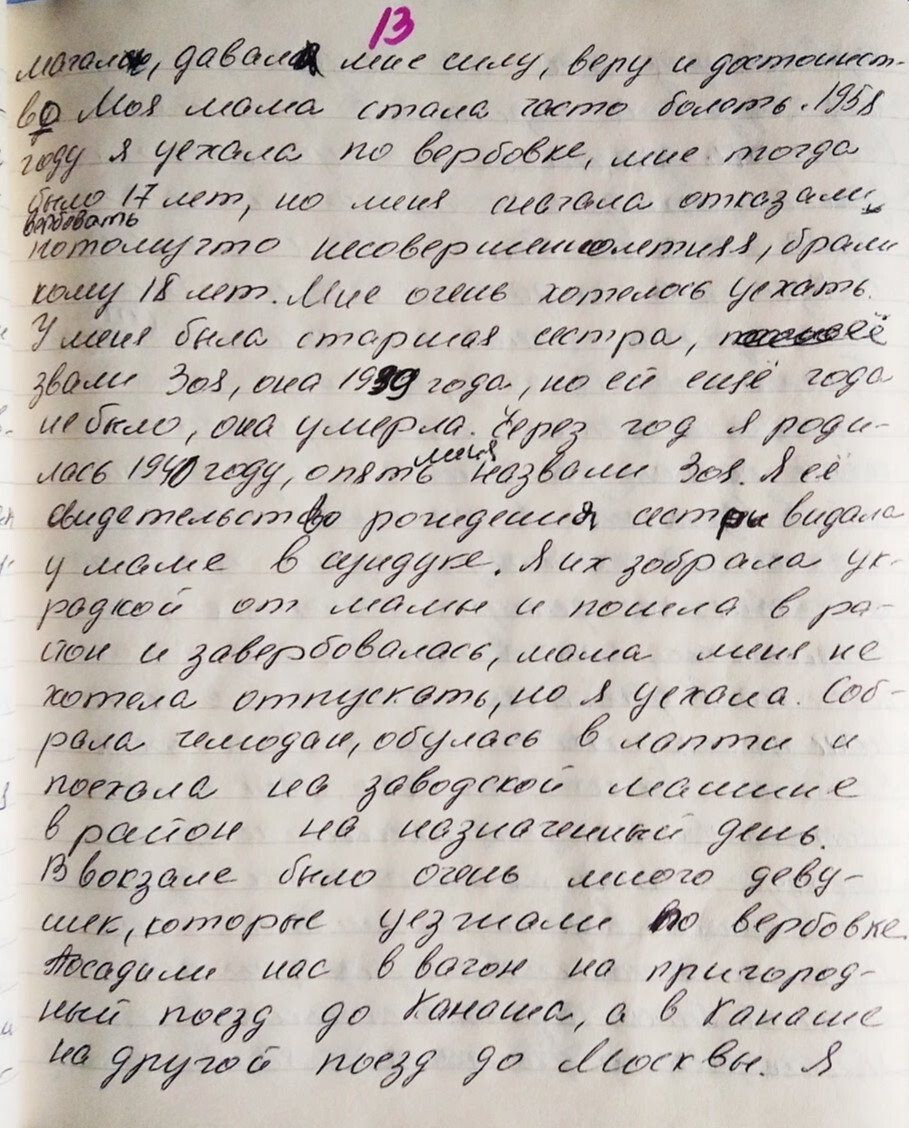 13
магала, давала мне силу, веру и достоинст-
во Моя мама стала часто болать. 1958
году я уехала по вербовке, мне тогда
было 17 лет, но меня сначала отказали
вербовать
потомучто несовершеннолетняя, брали
кому 18 лет. Мне очень хотелось уехать.
У меня была старшая сестра, её
звали Зоя, она 1939 года, но ей ещё года
не было, она умерла. Через год я роди-
меня
лась 1940 году, опять назвали Зоя. Я её
свидетельство рождения сестры видала
у маме в сундуке. Я их зобрала ук-
радкой от мамы и пошла в ра-
йон и завербовалась, мама меня не
хотела отпускать, но я уехала. Соб-
рала чемодан, обулась в лапти и
поехала на заводской машине
в район на назначенный день.
В вокзале было очень много деву-
шек, которые уезжали по вербовке.
Посадили нас в вагон на пригород-
ный поезд до Канаша, а в Канаше
на другой поезд до Москвы. Я